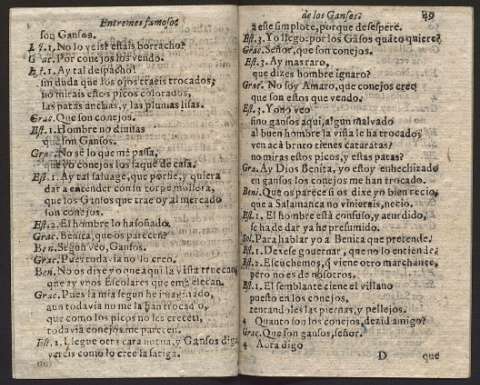 Entremes famoso
son Gansos.
Est.1. No lo veis? estais borracho?
Grac. Por conejos los vendo.
Est.1. Ay tal despacho!
sin duda que los ojos traeis trocados;
no mirais estos picos colorados,
las patas anchas, y las plumas lisas.
Grac. Que son conejos.
Est.1. Hombre no
que son Gansos.
Grac. No sè lo que me passa,
que yo conejos los saquè de casa.
Est.1. Ay tal saluage, que porfie, y quiera
dar a entender con su torpe mollera,
que los Gansos que trae oy al mercado
son conejos.
Est.2. El hombre lo ha soñado.
Grac. Benica, que os parecen?
Ben. Segun veo, Gansos.
Grac. Pues todavia no lo creo.
Ben. No os dixe yo que aqui la vista truecan,
que ay vnos Escolares que
Grac. Pues la mia segun he imaginado,
aun todavia no me la han trocado,
que como los picos no les creceu,
todavia conejos me parecen.
Est.1. Llegue otro cara notua, y Gansos diga
vereis como lo cree la fatiga.
de los Gansos. 39
a este simplote, porque desespere.
Est.3. Yo llego: por los Gãsos quãto quiere?
Grac. Señor, que son conejos.
Est.3. Ay mas raro,
que dizes hombre ignaro?
Grac. No soy Amaro, que conejos creo
que son estos que vendo.
Est.3. Yo no veo
sino gansos aqui, algun malvado
al buen hombre la vista le ha trocado,
ven acà bruto tienes cataratas?
no miras estos picos, y estas patas?
Gra. Ay Dios Benita, yo estoy enhechizado
en gansos los conejos me han trocado.
Beni. Que os parece si os dixe yo bien recio,
que a Salamanca no vinierais, necio.
Est.1. El hombre està confuso, y aturdido,
se ha de dar ya he presumido.
Sol. Para hablar yo a Benica que pretende,
Est.1. Dexese governar, que no lo entiende,
Est.2. Escuchemos, q̃ viene otro marchante,
pero no es de nosotros.
Est.1. El semblante tiene el villano
puesto en los conejos,
tentandoles las piernas, y pellejos.
4 Quanto son los conejos, dezid amigo?
Grac. Que son gansos, señor.
4 Aora digo
D que